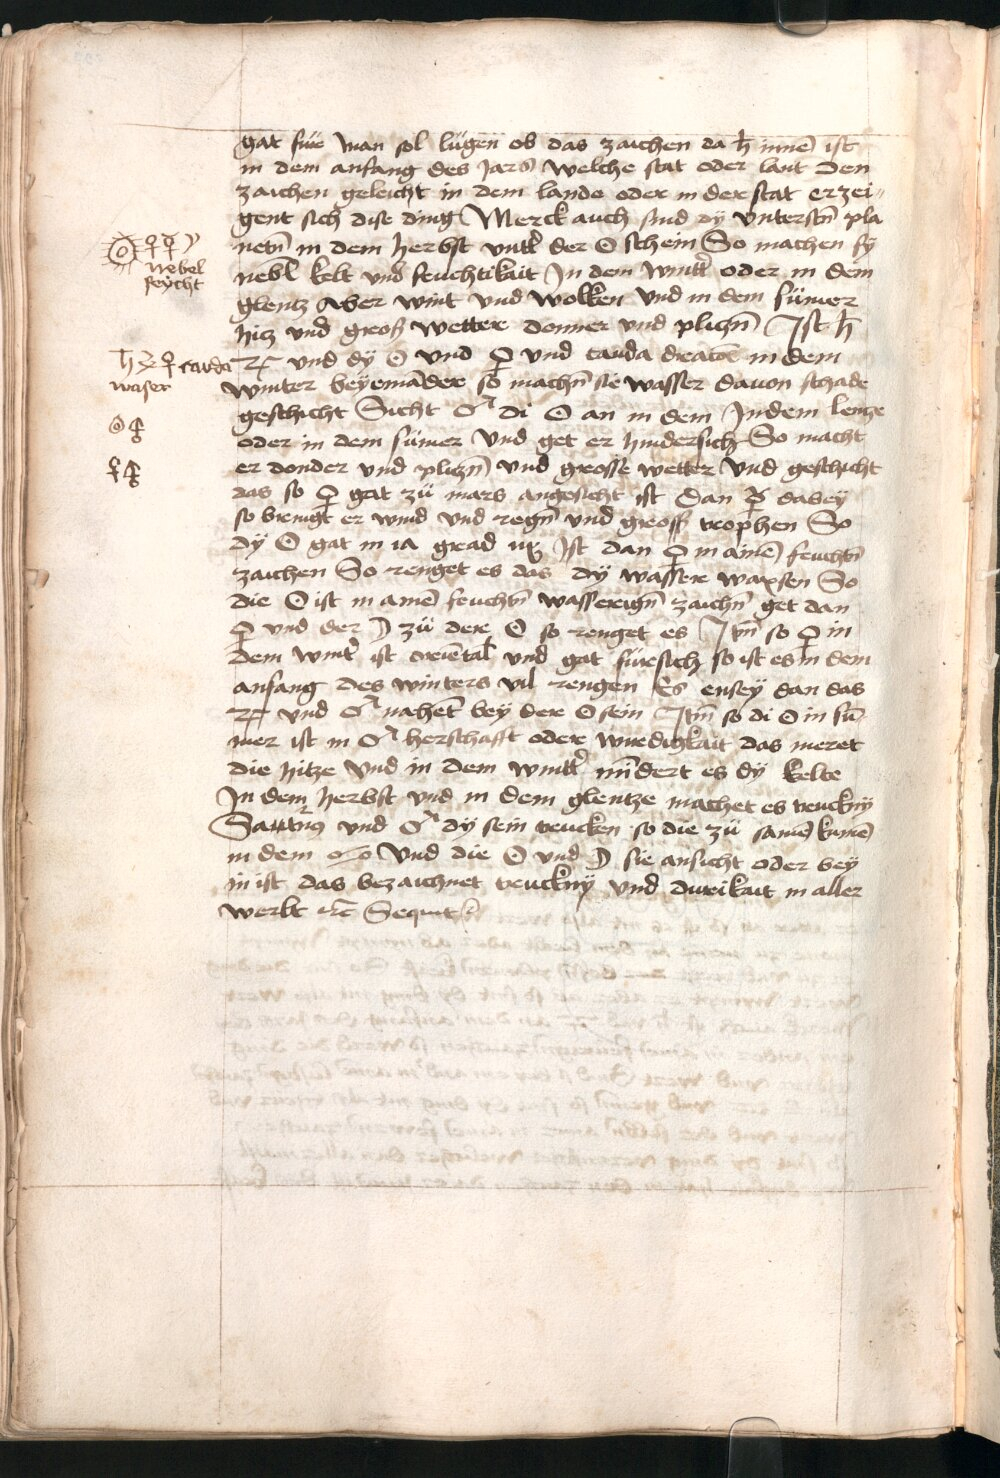 gat fur man sol lugen ob das zaichen da ♄ innē ist
in dem anfang des Jars welche stat oder lant den
zaichen geleicht in dem lande oder in der stat erzei-
gent sich dise ding Merck auch sind dy vnterstn̄ pla
netn̄ in dem herbst vntter der ☉ schein So machen sy
nebl kelt vnd feuchtikait In dem wintter oder in dem
glentz aber wint vnd wolken vnd in dem sümer
hitz vnd groß wetter donner vnd plitzn̄ Ist ♄
♃ vnd dy ☉ vnd ♀ vnd cauda dracōē in dem
winter beyemander so machn̄ sie wasser davon schade
geschicht Sicht ♂ di ☉ an in dem Indem lentze
oder in dem sümer vnd get er hindersich So macht
er donder vnd plitzn̄ vnd grosse wetter vnd geschicht
das so ♀ gat zü mars angesicht ist dan ☿ dabey
so bringt er wind vnd regn̄ vnd gross trophen So
dy ☉ gat in ia grad ♏ Ist dan ♀ in ainē feuchtn̄
zaichen So renget es das dy wasser waxsen So
die ☉ ist in ainē feuchtn̄ wassereign̄ zaichn̄ get dan
♀ vnd der ☽ zü der ☉ so renget es Itm̄ so ♀ in
dem wint̄ ist oriētal vnd gat fürsich so ist es in dem
anfang des winters vil rengen Es ensey dan das
♃ vnd ♂ nahet bey der ☉ sein Itm̄ so di ☉ in sü
mer ist in ♂ herschafft oder wirdigkait das meret
die hitze vnd in dem wintter mīdert es dy kelte
In dem herbst vnd in dem glentze machet es truckny
Saturnus vnd ♂ dy sein trucken so die zü samē kumē
in dem ♌ vnd die ☉ vnd ☽ sie ansicht oder bey
in ist das bezaichnet truckny vnd durikait in aller
werlt etc̄ Sequit
☉ ☿ ♀ ☽
nebel
feycht
♄ ♃ ♀ cauda
waser
☉ ♂
♀ ♂